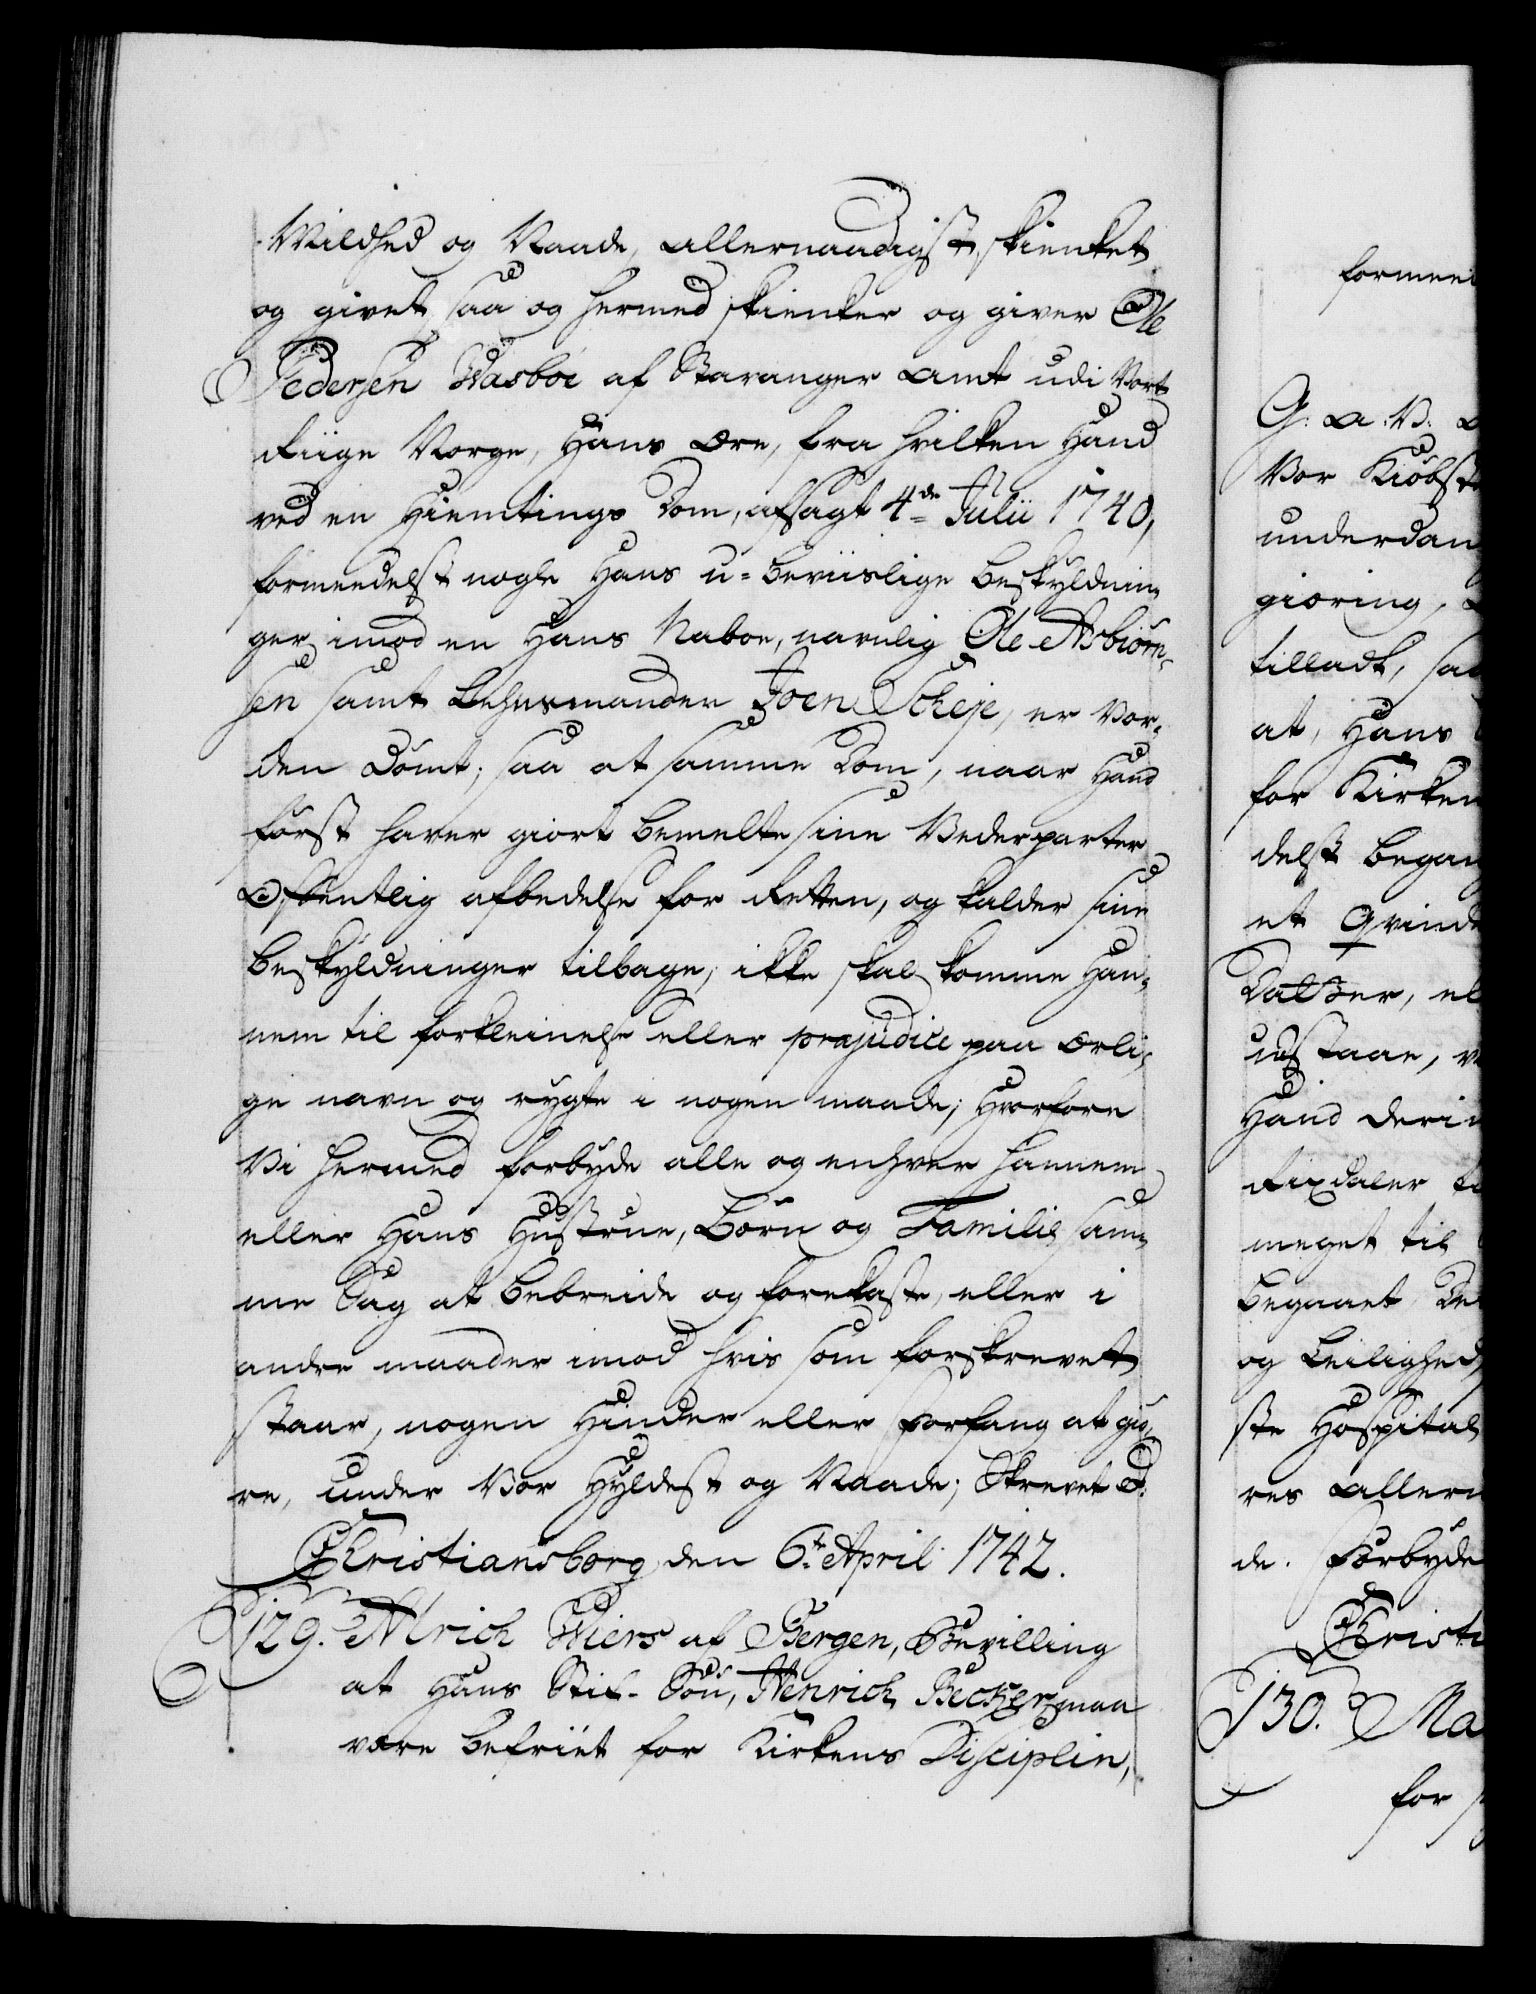 Mildhed og Naade, allernaadigst skienket
og givet, saa og hermed skienker og giver Ole
Pedersen Wasbøe af Stavanger Amt udi Vort
Riige Norge, Hans Ære, fra hvilken Hand
ved en Hiemtings Dom, afsagt 4de Julii 1740,
formeedelst nogle Hans u-beviislige Beskyldnin-
ger imod en Hans Naboe, navnlig Ole Asbiørn-
sen samt Lehnsmanden Joen Scheje, er vor-
den Dømt; saa at samme Dom, naar Hand
først haver giort bemelte sine Vederparter
Offentlig afbedelse for Retten, og kalder sine
Beskyldninger tilbage, ikke skal komme Han-
nem til forkleinelse eller præjudice paa Ærli-
ge navn og rygte i nogen maade; Hvorfore
Vi hermed forbyde alle og enhver Hannem
eller Hans Hustrue, Børn og Familie, sam-
me Sag at bebreide og forekaste, eller i
andre maader imod hvis som forskrevet
staar, nogen Hinder eller Forfang at giø-
re, under Vor Hyldest og Naade; Skrevet P:
Christiansborg den 6te April 1742.
129. Alrich Wiers af Bergen, Bevilling
at Hans Stif-Søn, Henrich Becker maa
være befriet for Kirkens Disciplin,
formee
G. A. V. A
Vor Kiøbst
underdan
giøring, 
tilladt, saa
at, Hans
for Kirken
delst began
et Qvinde
Datter, el
udstaae, 
Hand deri
Rixdaler ti
meget til
begaaet De
og Leilighed,
ste Hospital
res Allern
de. Forbyde
Christi
130. Ma
for